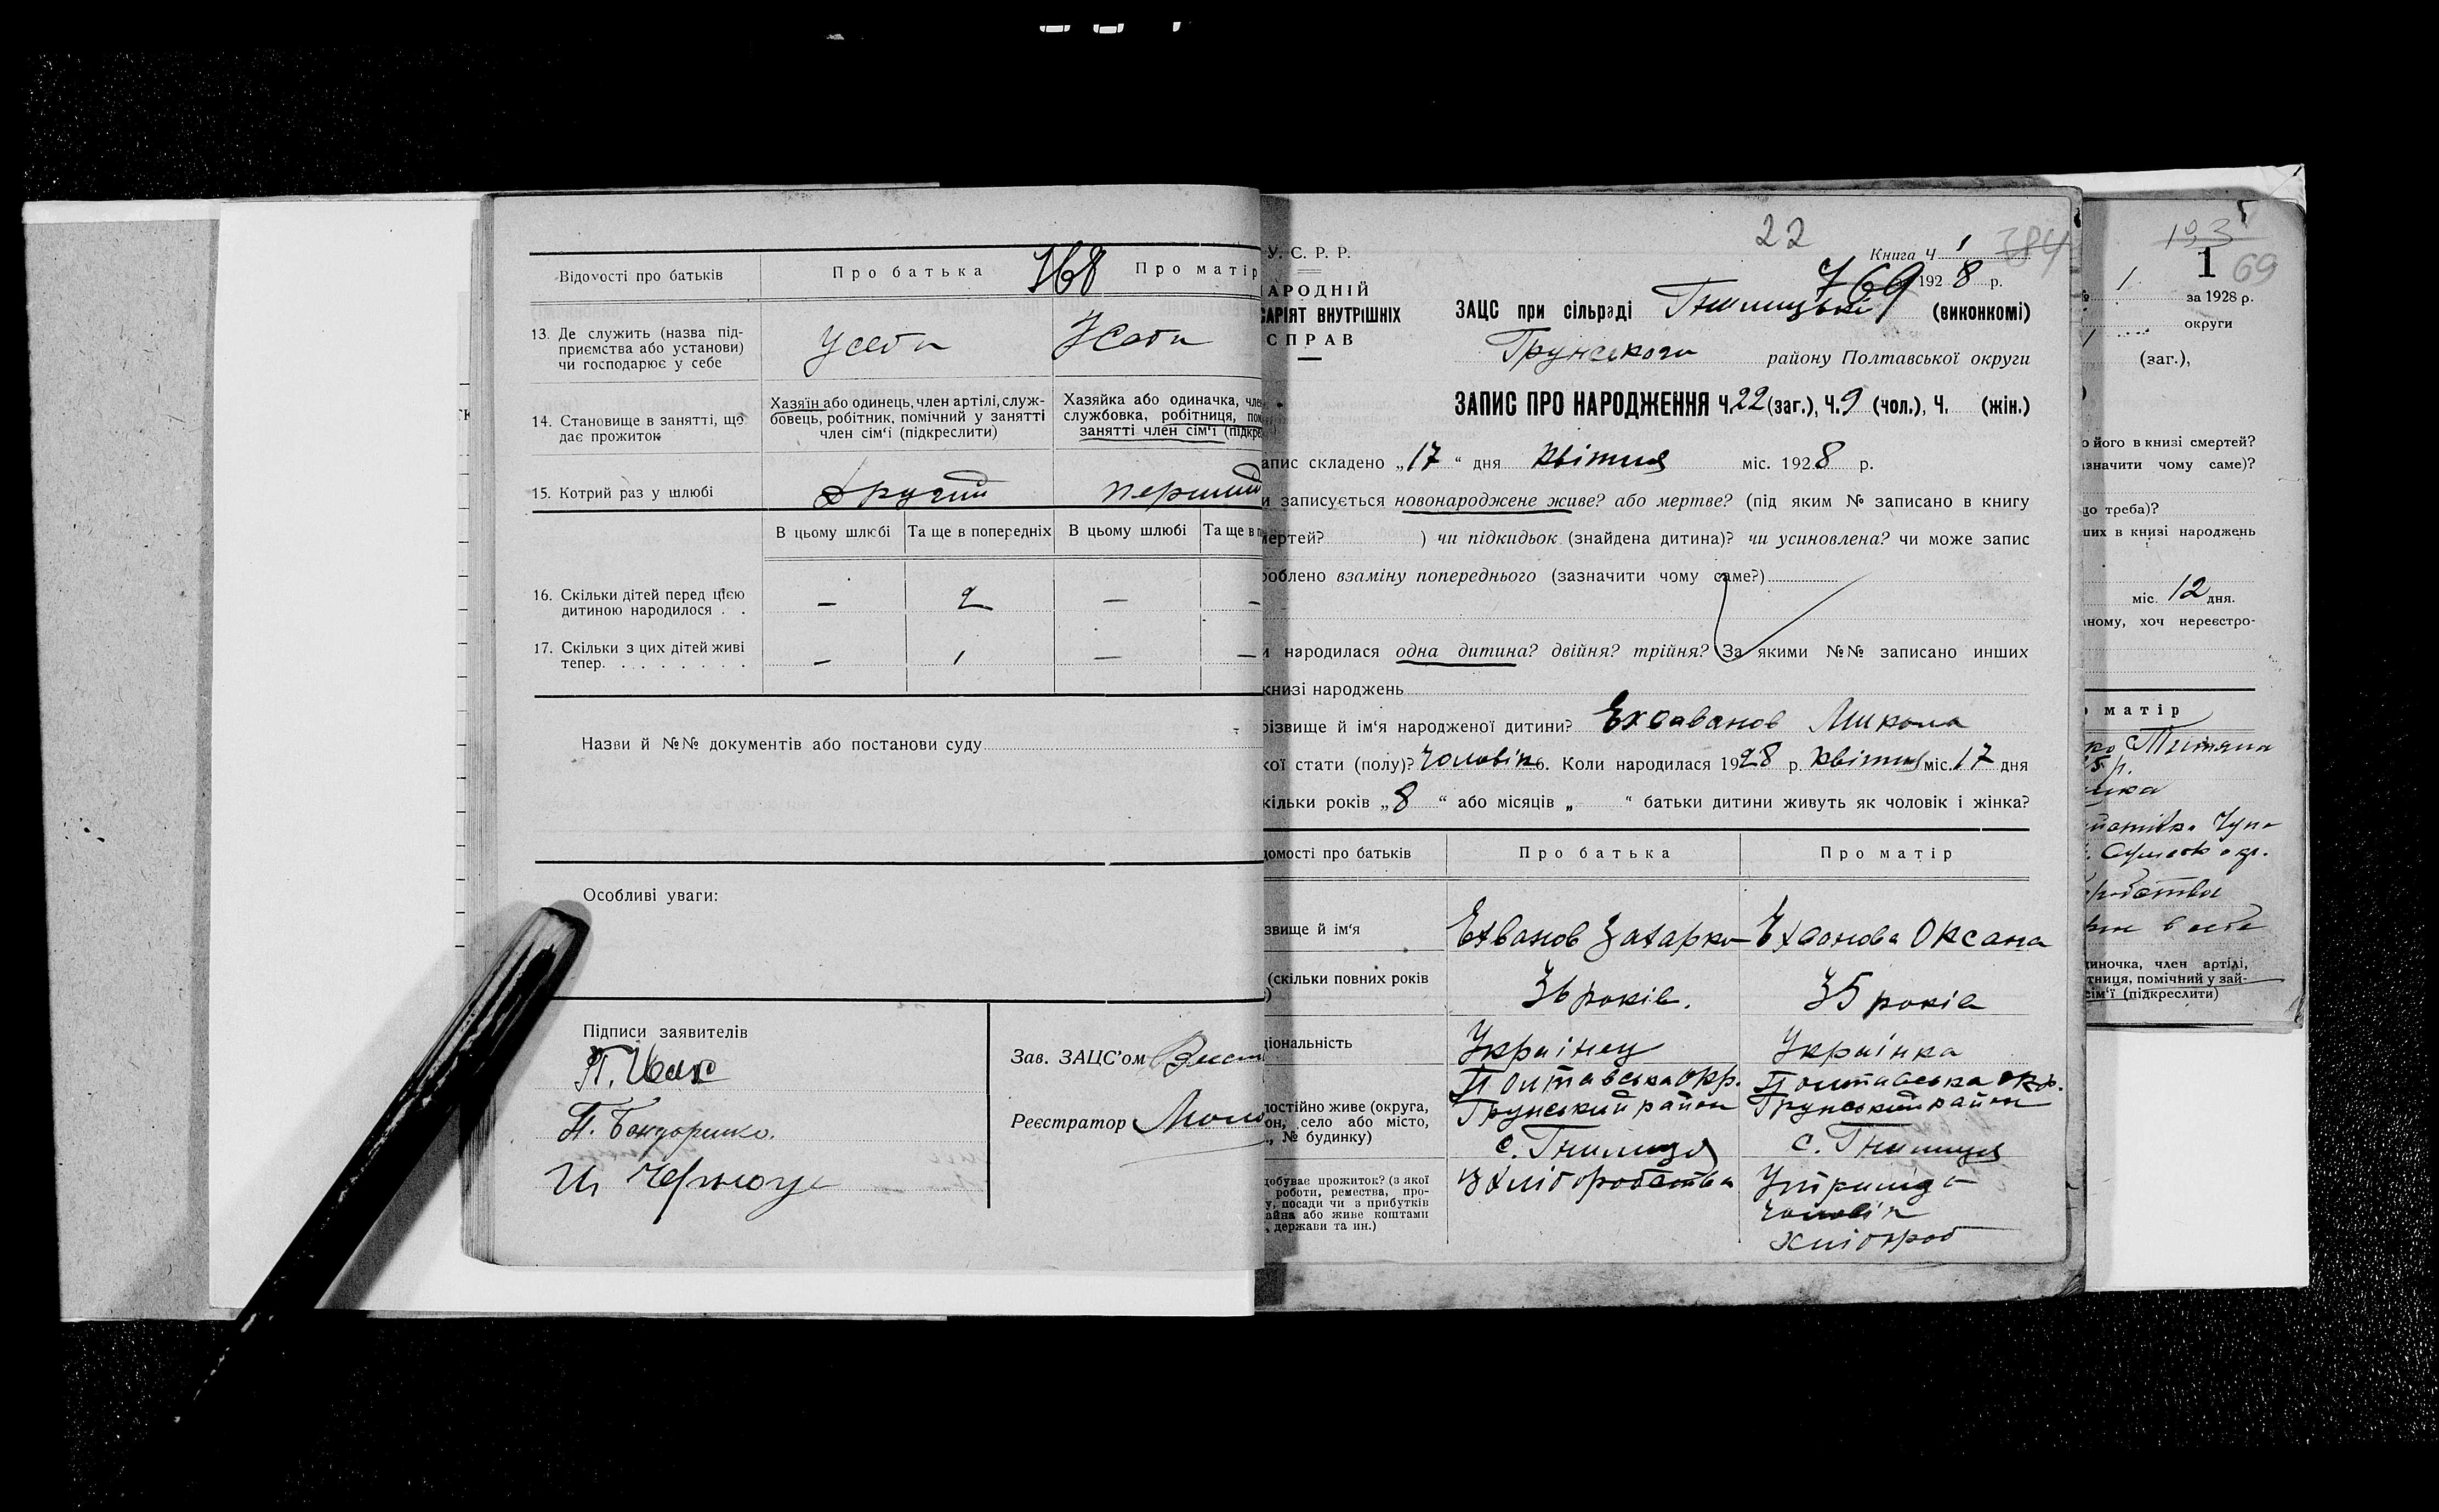 168
Відомості про батьків
Про батька
Про матір
13. Де служить (назва під-
приємства або установи)
чи господарює у себе
Усебе
Усебе
14. Становище в занятті, що
дає прожиток
Хазяїн або одинець, член артілі, служ-
бовець, робітник, помічний у занятті
член сім'ї (підкреслити)
Хазяйка або одиначка, чле
службовка, робітниця, пом
занятті член сім'ї (підкре
15. Котрий раз у шлюбі
другий
перший
В цьому шлюбі
Та ще в попередніх
В цьому шлюбі
Та ще в п
16. Скільки дітей перед цією
дитиною народилося . .
—
2
—
—
17. Скільки з цих дітей живі
тепер. . . . . . . .
—
1
—
—
Назви й №№ документів або постанови суду
Особливі уваги:
Підписи заявителів
Зав. ЗАЦС'ом
Реєстратор
22
384
Книга Ч 1
769
1928 р.
У. С. Р. Р.
АРОДНІЙ
САРІЯТ ВНУТРІШНІХ
СПРАВ
ЗАЦС при сільраді Гнилицькій (виконкомі)
Грунського району Полтавської округи
ЗАПИС ПРО НАРОДЖЕННЯ Ч. 22 (заг.), Ч. 9 (чол.), Ч. (жін.)
апис складено „17" дня Квітня міс. 1928 р.
и записується новонароджене живе? або мертве? (під яким № записано в книгу
мертей? ) чи підкидьок (знайдена дитина)? чи усиновлена? чи може запис
роблено взаміну попереднього (зазначити чому саме?)
и народилася одна дитина? двійня? трійня? За якими №№ записано инших
книзі народжень
різвище й ім'я народженої дитини? Микола
кої стати (полу)? Чоловік 6. Коли народилася 1928 р. Квітня міс. 17 дня
кільки років „8" або місяців „ " батьки дитини живуть як чоловік і жінка?
домості про батьків
Про батька
Про матір
звище й ім'я
Захарко
Оксана
(скільки повних років
36 років.
35 років
ціональність
Українец
Українка
постійно живе (округа,
он, село або місто,
., № будинку)
Полтавська окр.
Грунський район
с. Гнилиця
Полтавська окр.
Грунський район
с. Гнилиця
добуває прожиток? (з якої
роботи, ремества, про-
у, посади чи з прибутків
айна або живе коштами
, держави та ин.)
З хліборобства
чоловік
хлібороб
193
69
1
1.
за 1928 р.
округи
(заг.),
о його в книзі смертей?
значити чому саме)?
що треба)?
ших в книзі народжень
міс. 12 дня.
ному, хоч нереєстро-
матір
диночка, член артілі,
тниця, помічний у зай-
сім'ї (підкреслити)